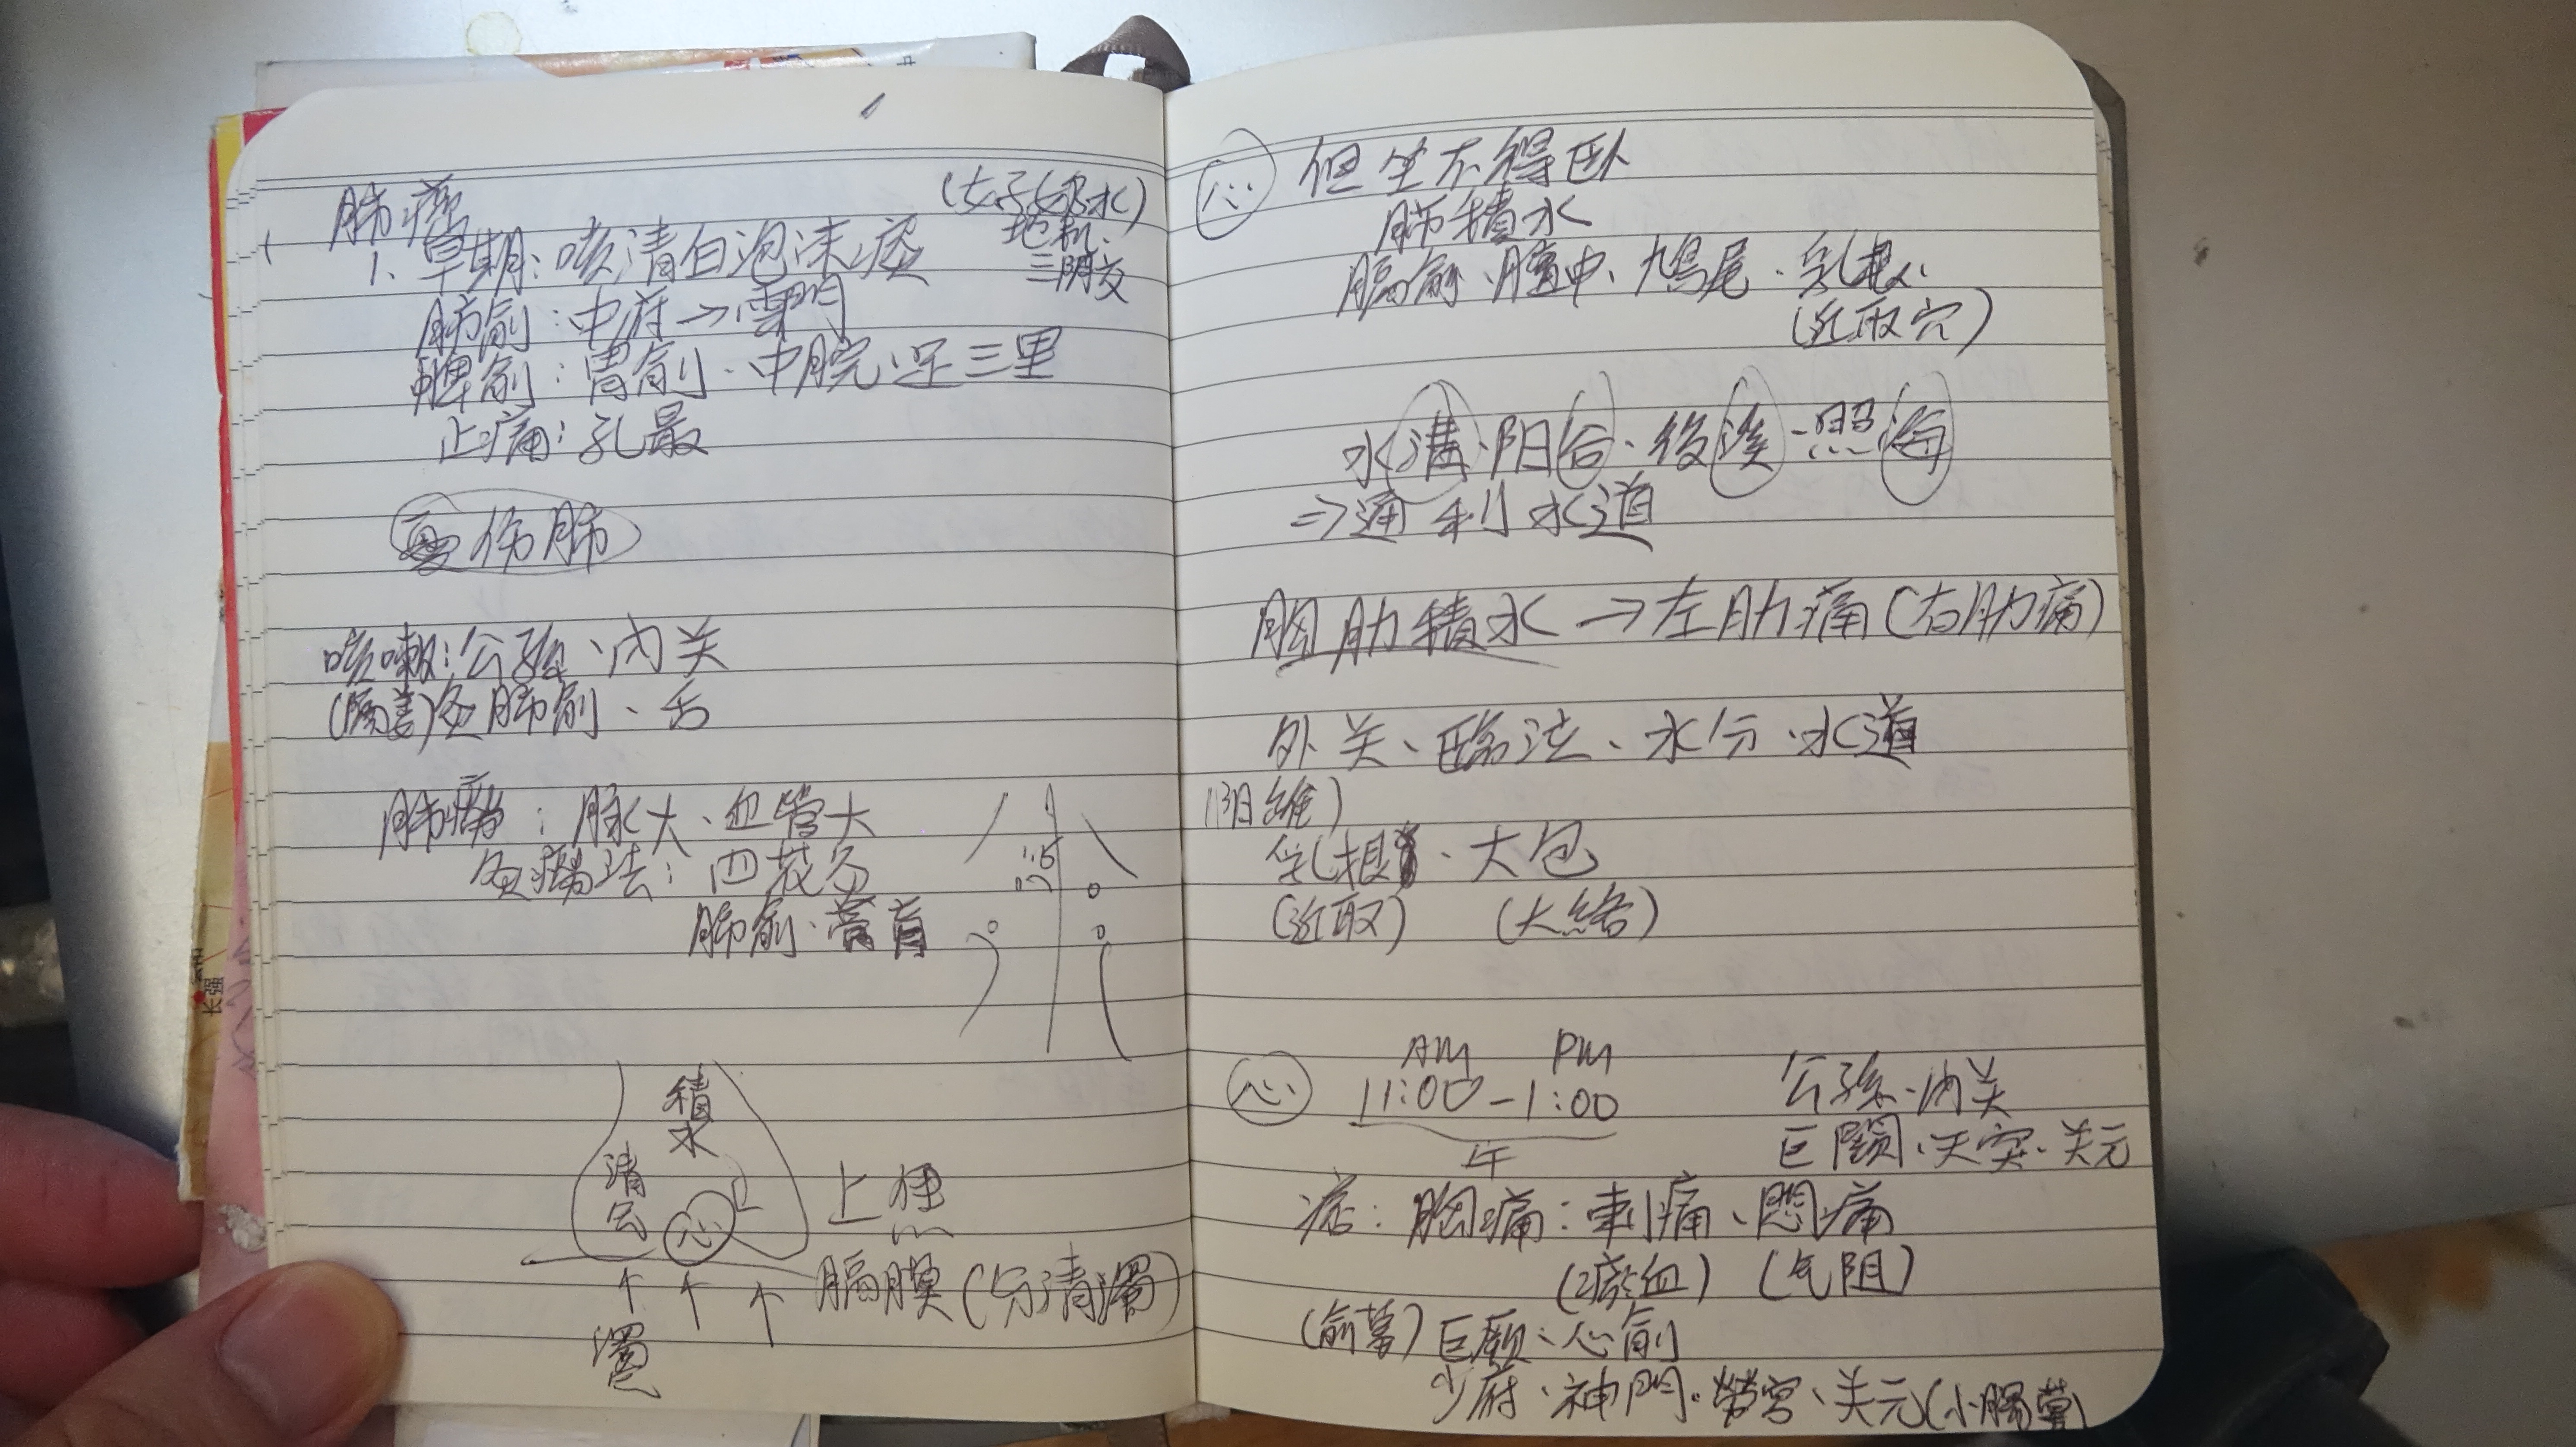 肺癆
(女子奶水)
地机、
三阴交
1、早期：咳清白泡沫痰
肺俞：中府→雲門
脾俞：胃俞、中脘、足三里
止痛：孔最
伤肺
咳嗽：公孫、内关
(隔姜)灸肺俞、
肺癆：脉大、血管大
灸癆法：四花灸
肺俞、膏肓
積水
清
心
上焦
膈膜(分清濁)
濁
心
但坐不得卧
肺積水
膈俞、膻中、鳩尾、乳根、
(近取穴)
水溝、阳谷、後溪、照海
⇒通利水道
胸肋積水→左肋痛(右肋痛)
外关、臨泣、水分、水道
(阳維)
乳根、大包
(近取) (大絡)
心
AM PM
11:00-1:00
午
公孫、内关
巨闕、天突、关元
症：胸痛：刺痛、悶痛
(瘀血) (气阻)
(俞募)巨厥、心俞
少府、神門、勞宮、关元(小腸募)
长强